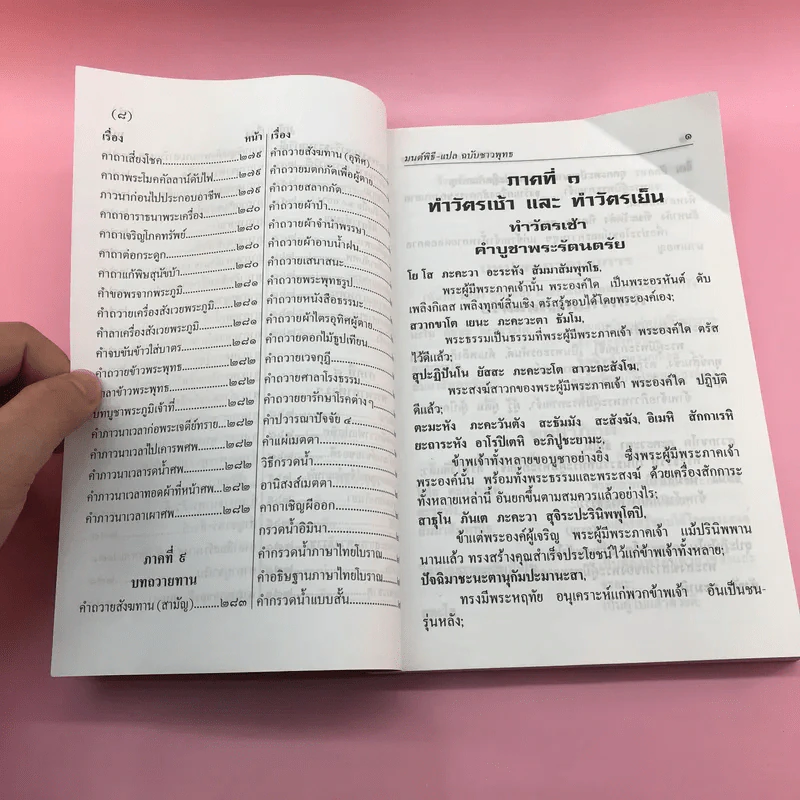 (๘)
เรื่อง หน้า
คาถาเสี่ยงโชค..........๒๗๙
คาถาพระโมคคัลลาน์ดับไฟ..........๒๗๙
ภาวนาก่อนไปประกอบอาชีพ..........๒๗๙
คาถาอาราธนาพระเครื่อง..........๒๘๐
คาถาเจริญโภคทรัพย์..........๒๘๐
คาถาต่อกระดูก..........๒๘๐
คาถาแก้พิษสุนัขบ้า..........๒๘๐
คำขอพรจากพระภูมิ..........๒๘๑
คำถวายเครื่องสังเวยพระภูมิ..........๒๘๑
คำลาเครื่องสังเวยพระภูมิ..........๒๘๑
คำจบขันข้าวใส่บาตร..........๒๘๑
คำถวายข้าวพระพุทธ..........๒๘๒
ลาข้าวพระพุทธ..........๒๘๒
บทบูชาพระภูมิเจ้าที่..........๒๘๒
คำภาวนาเวลาก่อพระเจดีย์ทราย..........๒๘๒
คำภาวนาเวลาไปเคารพศพ..........๒๘๒
คำภาวนาเวลารดน้ำศพ..........๒๘๒
คำภาวนาเวลาทอดผ้าที่หน้าศพ..........๒๘๒
คำภาวนาเวลาเผาศพ..........๒๘๒
ภาคที่ ๙
บทถวายทาน
คำถวายสังฆทาน (สามัญ)..........๒๘๓
เรื่อง
คำถวายสังฆทาน (อุทิศ)
คำถวายมตกภัตเพื่อผู้ตาย
คำถวายสลากภัต
คำถวายผ้าป่า
คำถวายผ้าจำนำพรรษา
คำถวายผ้าอาบน้ำฝน
คำถวายเสนาสนะ
คำถวายพระพุทธรูป
คำถวายหนังสือธรรมะ
คำถวายผ้าไตรอุทิศผู้ตาย
คำถวายดอกไม้ธูปเทียน
คำถวายเวจกุฎี
คำถวายศาลาโรงธรรม
คำถวายยารักษาโรคต่างๆ
คำปวารณาปัจจัย ๔
คำแผ่เมตตา
วิธีกรวดน้ำ
อานิสงส์เมตตา
คาถาเชิญผีออก
กรวดน้ำอิมินา
คำกรวดน้ำภาษาไทยโบราณ
คำอธิษฐานภาษาไทยโบราณ
คำกรวดน้ำแบบสั้น
มนต์พิธี-แปล ฉบับชาวพุทธ ๑
ภาคที่ ๑
ทำวัตรเช้า และ ทำวัตรเย็น
ทำวัตรเช้า
คำบูชาพระรัตนตรัย
โย โส ภะคะวา อะระหัง สัมมาสัมพุทโธ,
พระผู้มีพระภาคเจ้านั้น พระองค์ใด เป็นพระอรหันต์ ดับ
เพลิงกิเลส เพลิงทุกข์สิ้นเชิง ตรัสรู้ชอบได้โดยพระองค์เอง;
สวากขาโต เยนะ ภะคะวะตา ธัมโม,
พระธรรมเป็นธรรมที่พระผู้มีพระภาคเจ้า พระองค์ใด ตรัส
ไว้ดีแล้ว;
สุปะฏิปันโน ยัสสะ ภะคะวะโต สาวะกะสังโฆ,
พระสงฆ์สาวกของพระผู้มีพระภาคเจ้า พระองค์ใด ปฏิบัติ
ดีแล้ว;
ตะมะหัง ภะคะวันตัง สะธัมมัง สะสังฆัง, อิเมหิ สักกาเรหิ
ยะถาระหัง อาโรปิเตหิ อะภิปูชะยามะ,
ข้าพเจ้าทั้งหลายขอบูชาอย่างยิ่ง ซึ่งพระผู้มีพระภาคเจ้า
พระองค์นั้น พร้อมทั้งพระธรรมและพระสงฆ์ ด้วยเครื่องสักการะ
ทั้งหลายเหล่านี้ อันยกขึ้นตามสมควรแล้วอย่างไร;
สาธุโน ภันเต ภะคะวา สุจิระปะรินิพพุโตปิ,
ข้าแต่พระองค์ผู้เจริญ พระผู้มีพระภาคเจ้า แม้ปรินิพพาน
นานแล้ว ทรงสร้างคุณสำเร็จประโยชน์ไว้แก่ข้าพเจ้าทั้งหลาย;
ปัจฉิมาชะนะตานุกัมปะมานะสา,
ทรงมีพระหฤทัย อนุเคราะห์แก่พวกข้าพเจ้า อันเป็นชน-
รุ่นหลัง;